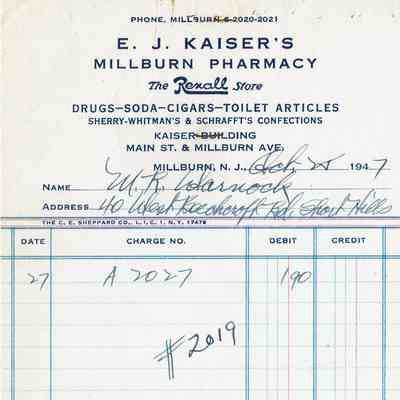 PHONE, MILLBURN 6-2020-2021
E. J. KAISER'S
MILLBURN PHARMACY
The Rexall Store
DRUGS—SODA—CIGARS—TOILET ARTICLES
SHERRY-WHITMAN'S & SCHRAFFT'S CONFECTIONS
KAISER BUILDING
MAIN ST. & MILLBURN AVE,
MILLBURN, N. J., Oct. 1947
NAME M. R. Warnock
ADDRESS 40 West Beechcroft Rd, Short Hills
THE C. E. SHEPPARD CO., L. I. C. 1, N. Y. 17478
DATE CHARGE NO. DEBIT CREDIT
27 A 2027 190
#2019